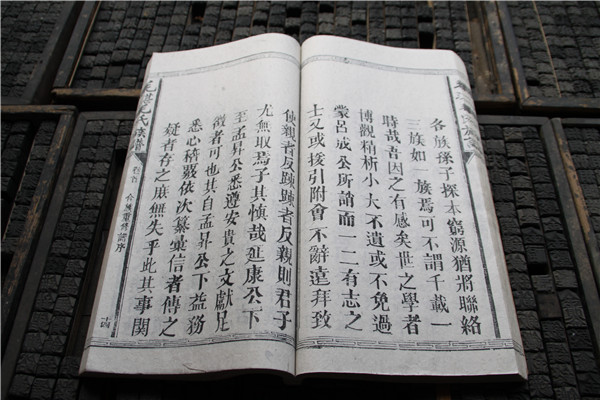 各族孫子探本窮源猶將聯絡
三族如一族焉可不謂千載一
時哉吾因之有感矣世之學者
博觀精析小大不遺或不免過
蒙呂成公所誚而一二有志之
士又或援引附會不辭遠拜致
使親者反踈踈者反親則君子
尤無取焉子其慎哉延康公下
至孟昇公悉遵安貴之文獻足
徵者可也其自孟昇公下益務
悉心稽覈依次纂彙信者傳之
疑者存之庶無失乎此其事關
氏族譜
卷首
重修譜序
十四